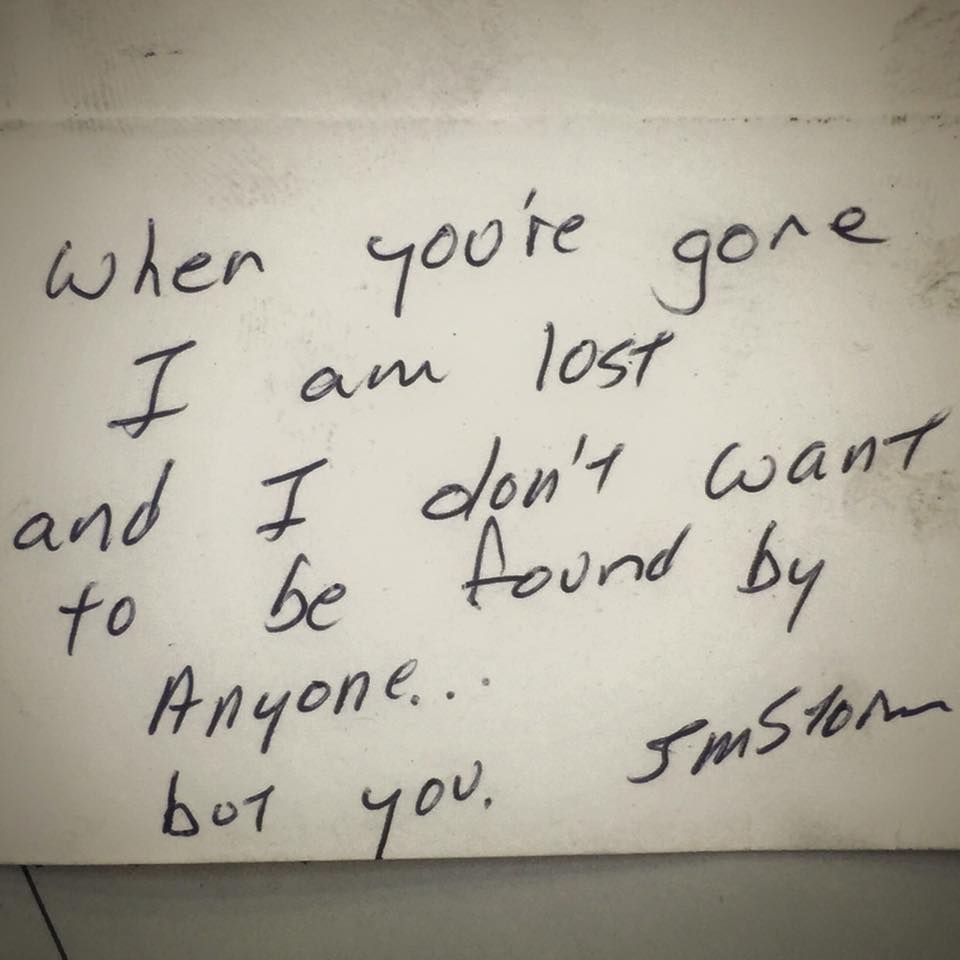 when you're gone
I am lost
and I don't want
to be found by
Anyone...
but you.
JmStorm